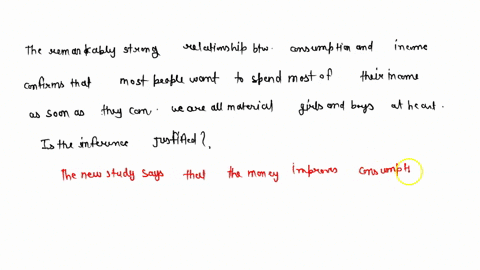 The remarkably strong relationship btw. consumption and income
confirms that most people want to spend most of their income
as soon as they can. we are all material girls and boys at heart.
Is the inference justified?.
The new study says that the money improves consumpti